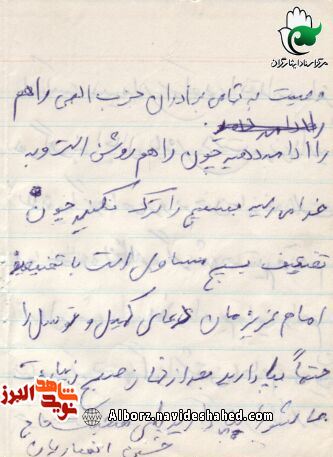 مرکز اسناد ایثارگران
وصیت به تمامی برادران حزب الهی راهم
را ادامه دهید چون راهم روشن است و به
خدا می رسد بسیج را ترک نکنید چون
تضعیف بسیج مساوی است با تضعیف
امام عزیزمان دعای کمیل و توسل را
حتماً بپا دارید بعد از نماز صبح زیارت
عاشورا
نوید شاهد البرز
Alborz.navideshahed.com